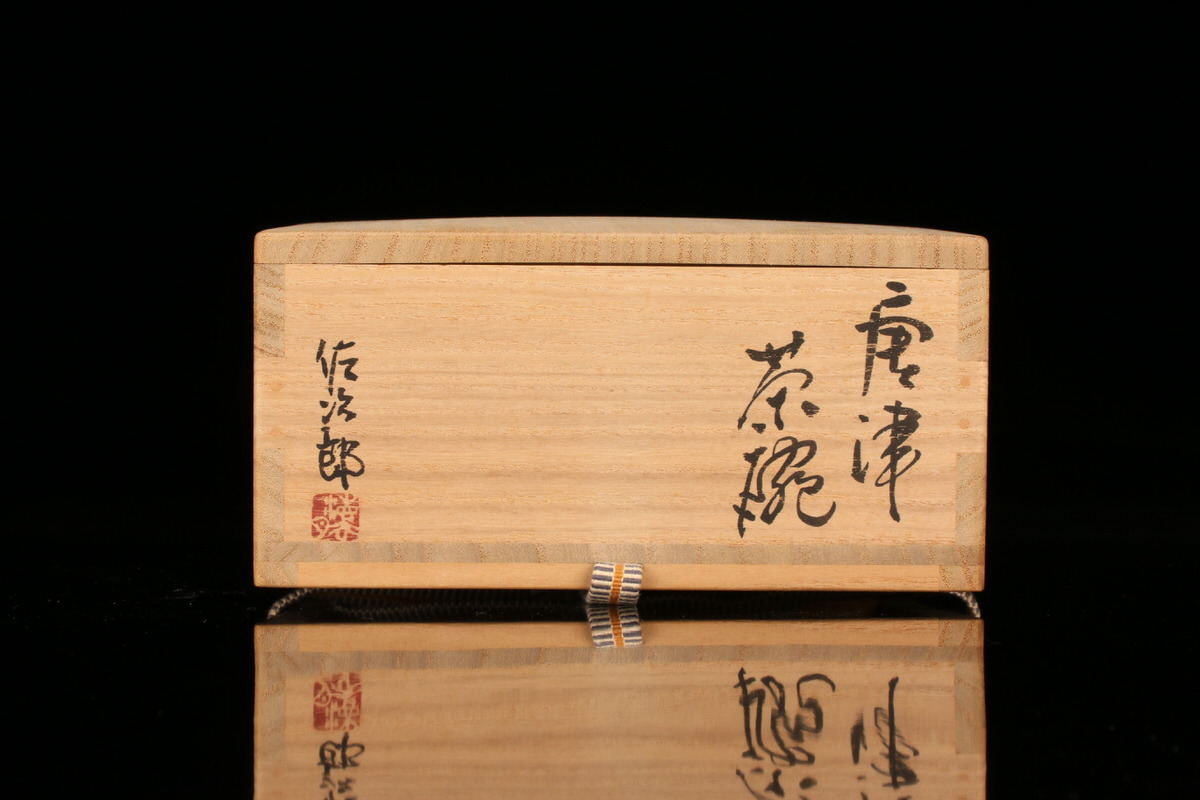 唐津
茶碗
佐次郎